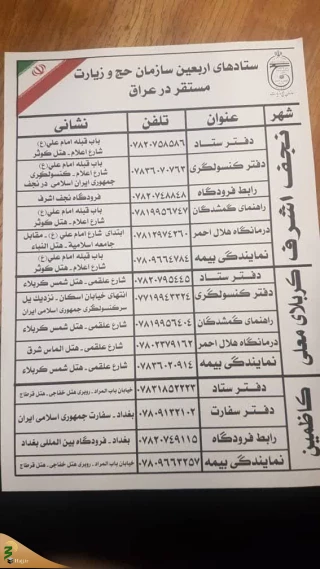 ستادهای اربعین سازمان حج و زیارت
مستقر در عراق
شهر عنوان تلفن نشانی
نجف اشرف
دفتر ستاد ۰۷۸۲۰۷۵۸۵۸۶ باب قبله امام علی(ع)
شارع اعلام - هتل کوثر
دفتر کنسولگری ۰۷۸۳۶۰۷۰۷۶۳ باب قبله امام علی(ع)
شارع اعلام - کنسولگری
جمهوری ایران اسلامی در نجف
رابط فرودگاه ۰۷۸۲۰۷۴۸۸۴۸ فرودگاه نجف اشرف
راهنمای گمشدگان ۰۷۸۱۹۹۵۶۷۴۷ باب قبله امام علی(ع)
شارع اعلام - هتل کوثر
درمانگاه هلال احمر ۰۷۸۱۲۹۷۴۲۶۰ ابتدای شارع امام علی (ع) - مقابل
جامعه اسلامیة - هتل النباء
نمایندگی بیمه ۰۷۸۰۹۶۶۴۷۸۴ باب قبله امام علی(ع)
شارع اعلام - هتل کوثر
کربلای معلی
دفتر ستاد ۰۷۸۲۰۷۹۵۴۴۵ شارع علقمی - هتل شمس کربلاء
دفتر کنسولگری ۰۷۷۱۹۹۴۳۳۲۴ انتهای خیابان اسکان - نزدیک پل
سرکنسولگری جمهوری اسلامی ایران
راهنمای گمشدگان ۰۷۸۱۹۹۵۶۴۰۴ شارع علقمی - هتل شمس کربلاء
درمانگاه هلال احمر ۰۷۸۰۲۳۷۹۱۶۲ شارع علقمی - هتل الماس شرق
نمایندگی بیمه ۰۷۸۳۶۰۲۰۹۱۴ شارع علقمی - هتل شمس کربلاء
کاظمین
دفتر ستاد ۰۷۸۳۱۸۵۲۲۲۳ خیابان باب المراد - روبری هتل خفاجی - هتل قرطاج
دفتر سفارت ۰۷۸۰۹۱۳۲۱۰۲ بغداد - سفارت جمهوری اسلامی ایران
رابط فرودگاه ۰۷۸۲۰۷۴۹۱۱۵ بغداد - فرودگاه بین المللی بغداد
نمایندگی بیمه ۰۷۸۰۹۶۶۳۲۵۷ خیابان باب المراد - روبری هتل خفاجی - هتل قرطاج
Hajir